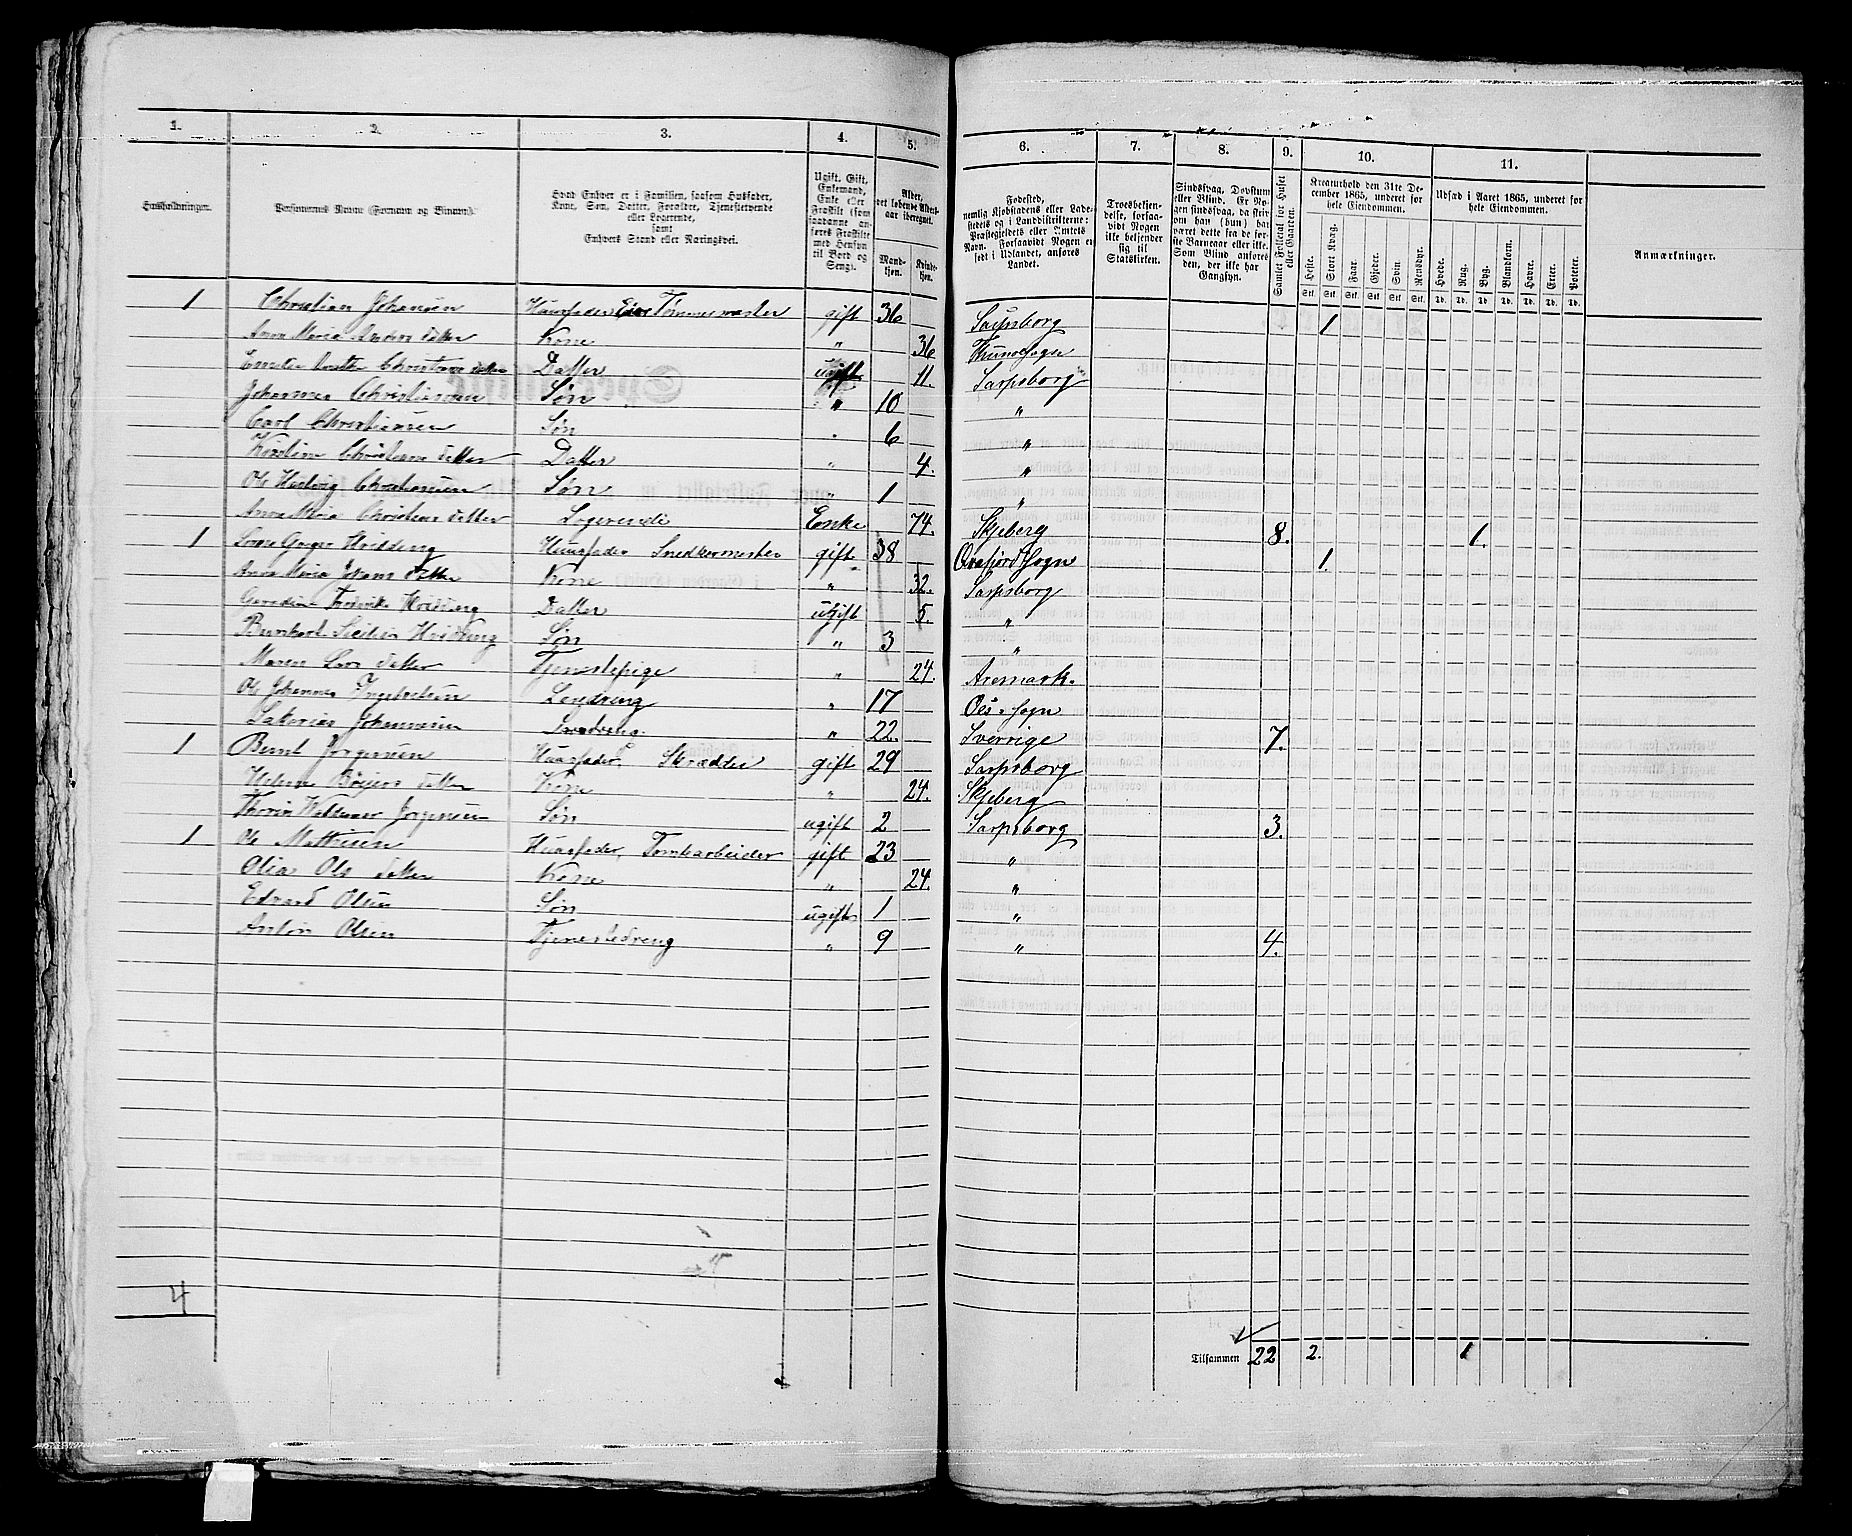 1. 2. 3. 4. 5. 6. 7. 8. 9. 10. 11.
Husholdninger.
Personernes Navne (Fornavn og Tilnavn).
Hvad Enhver er i Familien, saasom Husfader, Kone, Søn, Datter, Forældre, Tjenestetyende eller Logerende, samt Enhvers Stand eller Næringsvei.
Ugift, Gift, Enkemand, Enke eller Fraskilt (som saadanne anføres Fraskilte med Hensyn til Bord og Seng).
Alder, det løbende Alders-aar iberegnet.
Mandkjøn. Kvindekjøn.
Fødested, nemlig Kjøbstadens eller Ladestedets og i Landdistrikterne: Præstegjeldets eller Amtets Navn. Forsaavidt Nogen er født i Udlandet, anføres Landet.
Troesbekjendelse, forsaavidt Nogen ikke bekjender sig til Statskirken.
Sindssvag, Døvstum eller Blind. Er Nogen sindssvag, da skrives han (hun) har været dette fra de første Barneaar eller ikke. Som Blind anføres den, der ikke har Gangsyn.
Samlet Folketal for Huset eller Gaarden.
Kreaturhold den 31te December 1865, underet for hele Eiendommen.
Heste. Stort Kvæg. Faar. Gjeder. Svin. Rensdyr.
Udsæd i Aaret 1865, underet for hele Eiendommen.
Hvede. Rug. Byg. Blandkorn. Havre. Erter. Poteter.
Anmærkninger.
Stk. Stk. Stk. Stk. Stk. Stk. Td. Td. Td. Td. Td. Td. Td.
1 Christian Johansen Huusfader Eier Tømmermester gift 36 Sarpsborg 1
Anna Maria Anders datter Kone " 36 Thunøsogn
Emelie Christians datter Datter ugift 11. Sarpsborg
Johannes Christiansen Søn " 10 "
Carl Christiansen Søn " 6 "
Kristine Christians datter Datter " 4. "
Ole Hartvig Christiansen Søn " 1 "
Anna Maria Christians datter Logerende Enke 74. Skjeberg 8. 1.
1 Hvidding Huusfader Snedkermester gift 38 Sogn 1.
Anna Maria Johans datter Kone " 32. Sarpsborg
Fredrikke Hvidding Datter ugift 5. "
Bernhart Hvidding Søn " 3 "
Maren Lars datter Tjenstepige " 24. Aremark.
Ole Johannes Læredreng " 17 Sogn
Sakarias Johannesen Svendreng. " 22. Sverrige 7.
1 Bernt Jørgensen Huusfader, Skrædder gift 29 Sarpsborg
Helene Børgers datter Kone " 24. Skjeberg
Thorin Waldemar Jørgensen Søn ugift 2 Sarpsborg 3.
1 Ole Mathisen Huusfader, Tomtearbeider gift 23 "
Olia Ols datter Kone " 24. "
Edvard Olsen Søn ugift 1 "
Anton Olsen Tjenestedreng " 9 " 4.
4
Tilsammen 22 2. 1